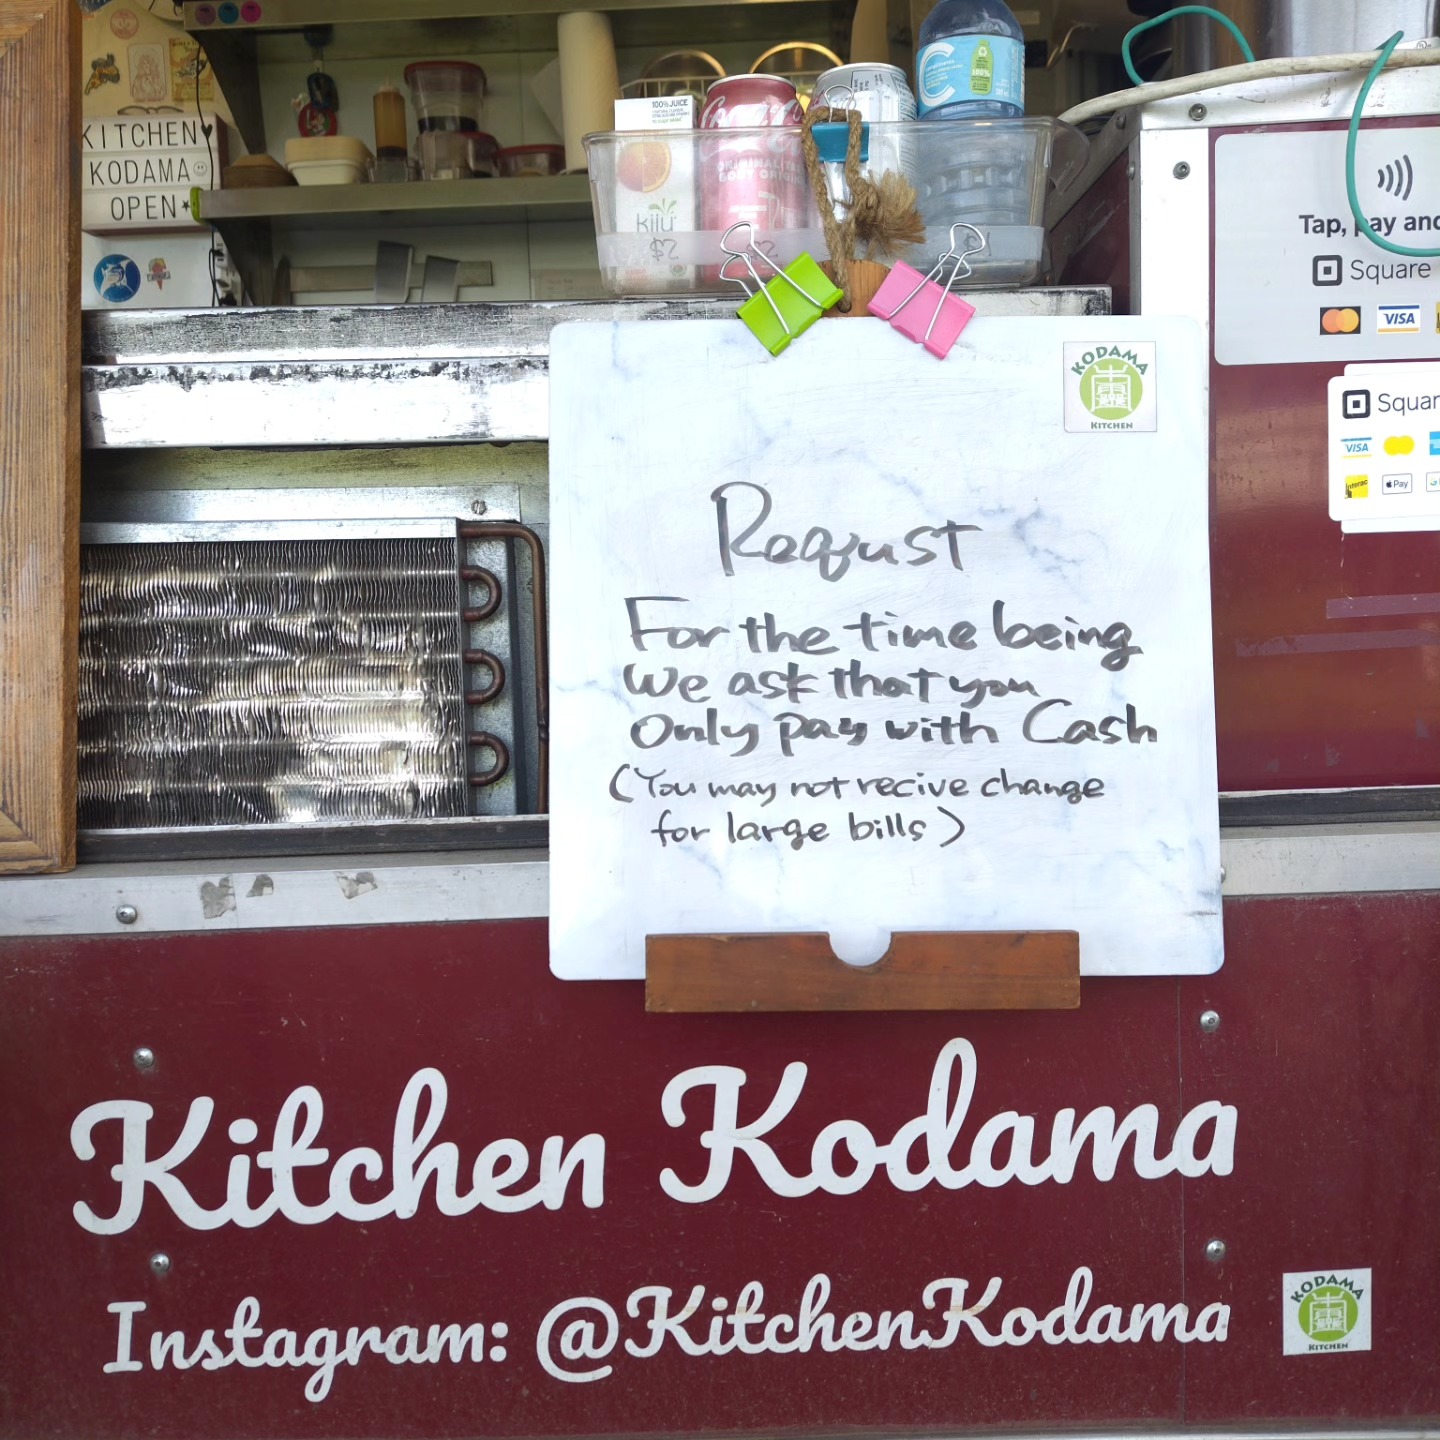 KITCHEN
KODAMA
OPEN
100% JUICE
kiju
$2
$2
$1
100%
Tap, pay and
Square
VISA
Square
VISA
Interac
Pay
KODAMA
KITCHEN
Request
For the time being
We ask that you
Only pay with Cash
(You may not recive change
for large bills)
Kitchen Kodama
Instagram: @KitchenKodama
KODAMA
KITCHEN